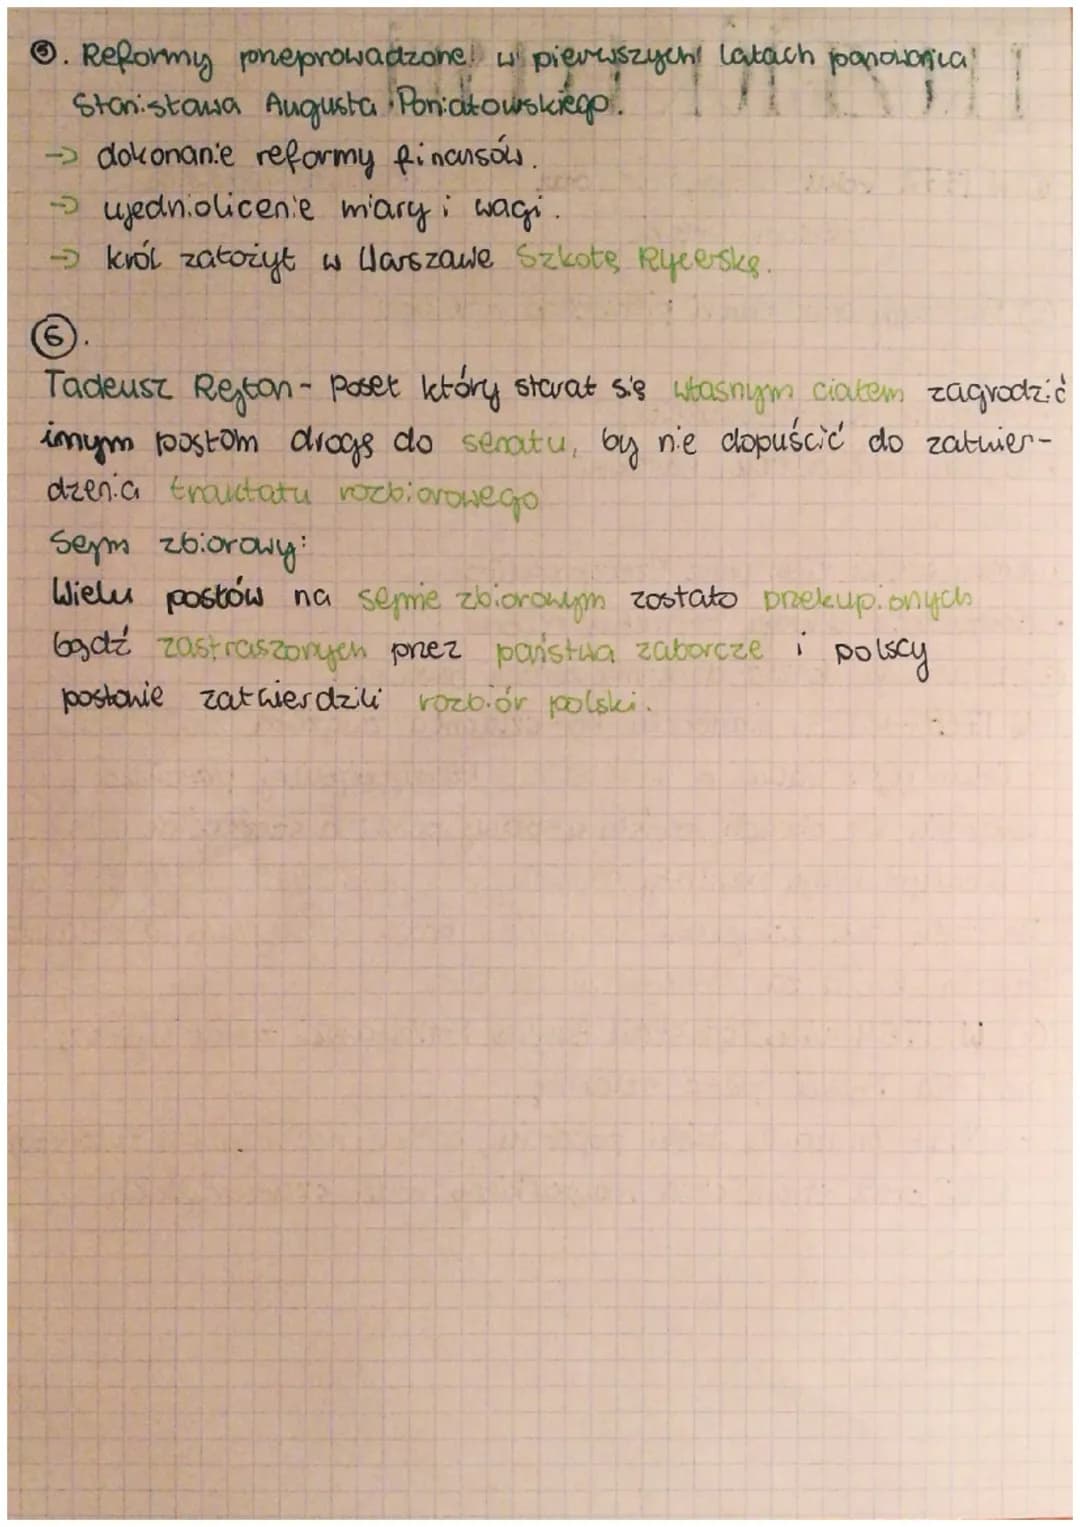 ⑤. Reformy przeprowadzone w pierwszych latach panowania
Stanisława Augusta Poniatowskiego.
→ dokonanie reformy finansów.
→ ujednolicenie miary i wagi.
→ król założył w Warszawie Szkołę Rycerską.
⑥.
Tadeusz Rejtan - Poseł który starał się własnym ciałem zagrodzić
innym posłom drogę do senatu, by nie dopuścić do zatwier-
dzenia traktatu rozbiorowego
Sejm zbiorowy:
Wielu posłów na sejmie zbiorowym zostało przekupionych
bądź zastraszonych przez państwa zaborcze i polscy
posłowie zatwierdzili rozbiór polski.